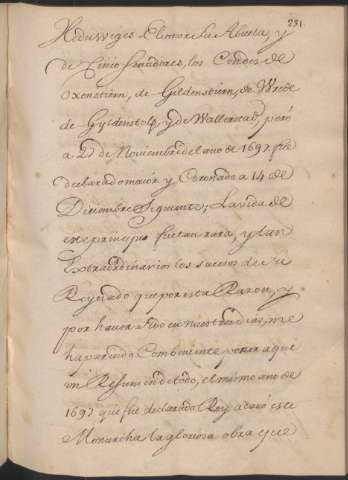 231
Hedwiges Eleonore su Abuela, y
de Cinco Senadores, los Condes de
Oxenstiern, de Gildenstiern, de Wrede
de Gyldenstolp, y de Wallerstad, però
a 29 de Noviembre del ano de 1697 fue
declarado maior y Coronado a 14 de
Diciembre siguiente; La vida de
este principe fue tan rara, y tan
Extraordinarios los sucesos de su
Reynado que por esta Razon, y
por haver sido en nuestros dias, me
ha parecido Combeniente poner aqui
un Resumen de todo, el mismo ano de
1697 que fue declarado Rey acavò este
Monarcha la gloriosa obra que